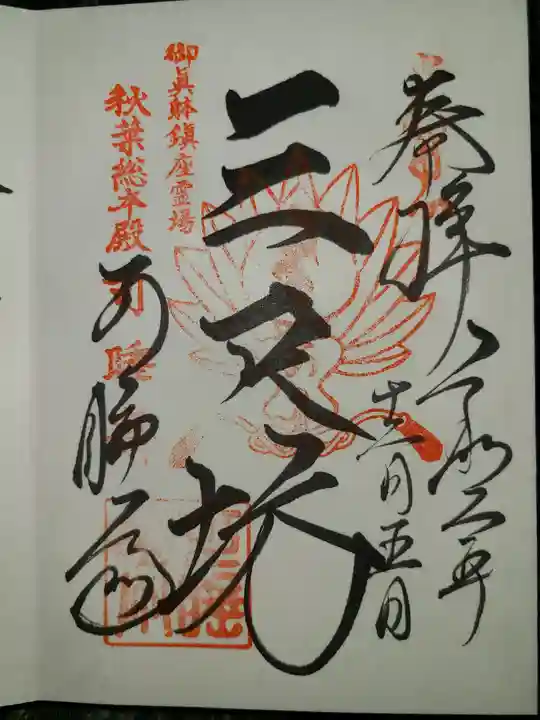 奉拝
令和二年
十二月五日
三尺坊
御真躰鎮座霊場
秋葉総本殿可睡
可睡斎